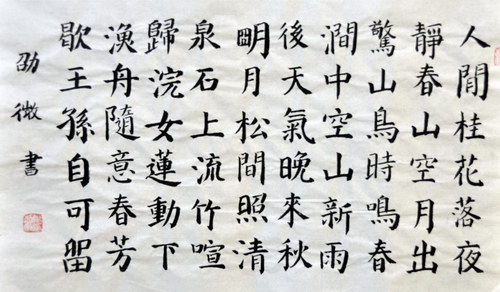 人閒桂花落夜
靜春山空月出
驚山鳥時鳴春
澗中空山新雨
後天氣晚來秋
明月松間照清
泉石上流竹喧
歸浣女蓮動下
漁舟隨意春芳
歇王孫自可留
劭微書